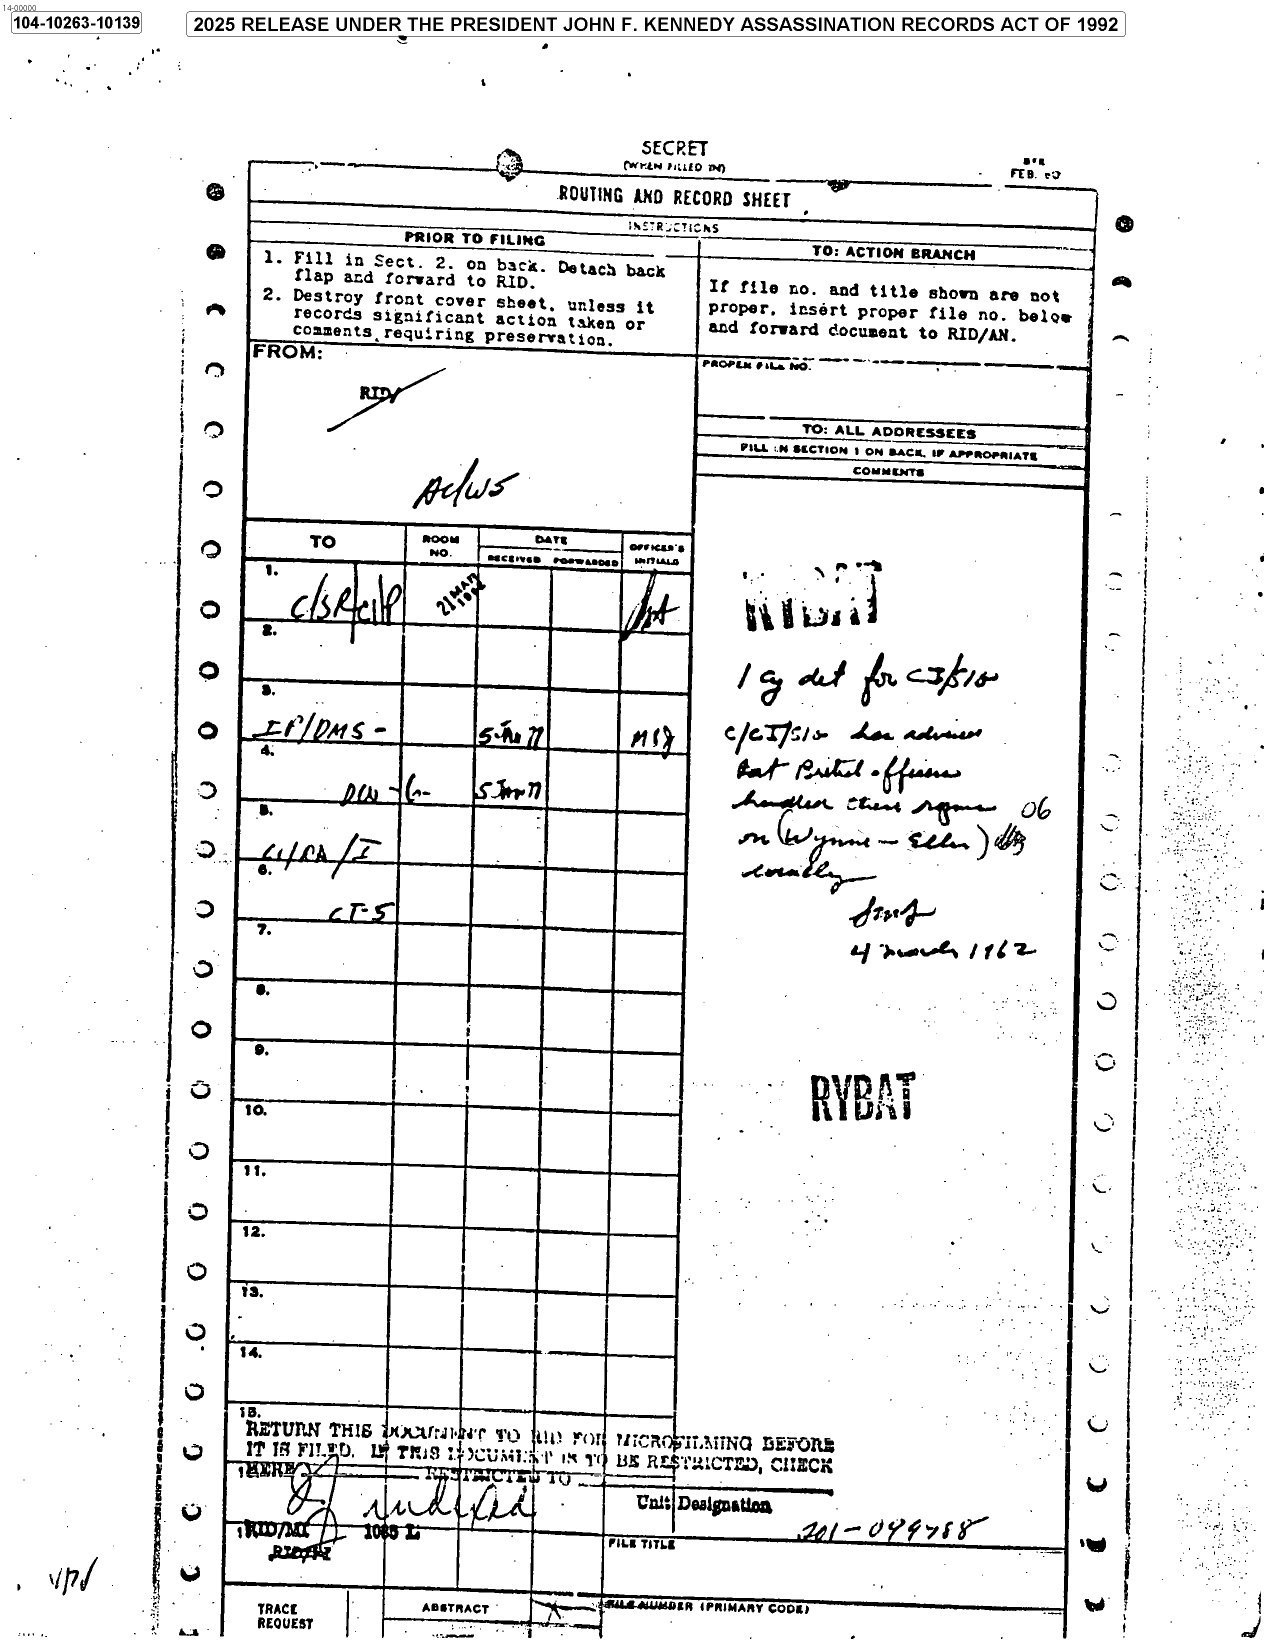 14-00000
104-10263-10139
2025 RELEASE UNDER THE PRESIDENT JOHN F. KENNEDY ASSASSINATION RECORDS ACT OF 1992
SECRET
(WHEN FILLED IN)
FEB.
ROUTING AND RECORD SHEET
INSTRUCTIONS
PRIOR TO FILING
1. Fill in Sect. 2. on back. Detach back
flap and forward to RID.
2. Destroy front cover sheet, unless it
records significant action taken or
comments requiring preservation.
TO: ACTION BRANCH
If file no. and title shown are not
proper, insert proper file no. below
and forward document to RID/AN.
FROM:
RID/
PROPER FILE NO.
TO: ALL ADDRESSEES
FILL IN SECTION 1 ON BACK, IF APPROPRIATE
COMMENTS
TO
ROOM
NO.
DATE
RECEIVED
FORWARDED
OFFICER'S
INITIALS
1.
C/SR/CI/P
21 MAR
2.
3.
IP/DMS -
5 Jan 77
4.
5 Jan 77
5.
6.
7.
8.
9.
10.
11.
12.
13.
14.
15.
RYBAT
1 cy det for CI/SIG
C/CI/SIG has advised
that British officers
handled these
06
on (Wynne - Eller)
4 March 1962
RYBAT
RETURN THIS DOCUMENT TO RID FOR MICROFILMING BEFORE
IT IS FILED. IF THIS DOCUMENT IS TO BE RESTRICTED, CHECK
HERE
RESTRICTED TO
Unit Designation
indexed
RID/MI
1085 L
FILE TITLE
TRACE
REQUEST
ABSTRACT
FILE NUMBER (PRIMARY CODE)